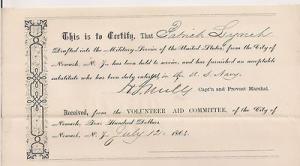 This is to Certify, That Patrick Lynch
Drafted into the Military Service of the United States, from the City of
Newark, N. J. has been held to service, and has furnished an acceptable
substitute who has been duly enlisted in the U. S. Navy.
Capt'n and Provost Marshal.
Received, from the VOLUNTEER AID COMMITTEE, of the City of
Newark, Hundred Dollars
Newark, N. J. July 12 186